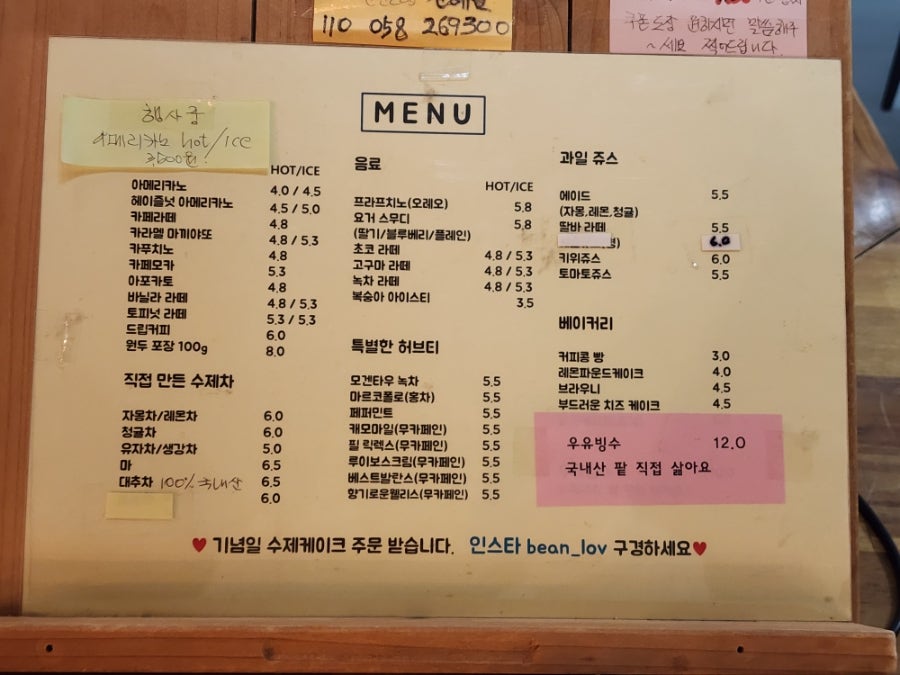 110 058 269300
쿠폰도장 원하시면 말씀해주
~세요 찍어드립니다.
MENU
행사중
아메리카노 hot/ICE
HOT/ICE
아메리카노 4.0 / 4.5
헤이즐넛 아메리카노 4.5 / 5.0
카페라떼 4.8
카라멜 마끼야또 4.8 / 5.3
카푸치노 4.8
카페모카 5.3
아포카토 4.8
바닐라 라떼 4.8 / 5.3
토피넛 라떼 5.3 / 5.3
드립커피 6.0
원두 포장 100g 8.0
직접 만든 수제차
자몽차/레몬차 6.0
청귤차 6.0
유자차/생강차 5.0
마 6.5
대추차 100% 국내산 6.5
6.0
음료
HOT/ICE
프라프치노(오레오) 5.8
요거 스무디 5.8
(딸기/블루베리/플레인)
초코 라떼 4.8 / 5.3
고구마 라떼 4.8 / 5.3
녹차 라떼 4.8 / 5.3
복숭아 아이스티 3.5
특별한 허브티
모겐타우 녹차 5.5
마르코폴로(홍차) 5.5
페퍼민트 5.5
캐모마일(무카페인) 5.5
필 릭렉스(무카페인) 5.5
루이보스크림(무카페인) 5.5
베스트발란스(무카페인) 5.5
향기로운웰리스(무카페인) 5.5
과일 쥬스
에이드 5.5
(자몽,레몬,청귤)
딸바 라떼 5.5
6.0
키위쥬스 6.0
토마토쥬스 5.5
베이커리
커피콩 빵 3.0
레몬파운드케이크 4.0
브라우니 4.5
부드러운 치즈 케이크 4.5
우유빙수 12.0
국내산 팥 직접 삶아요
♥ 기념일 수제케이크 주문 받습니다. 인스타 bean_lov 구경하세요♥